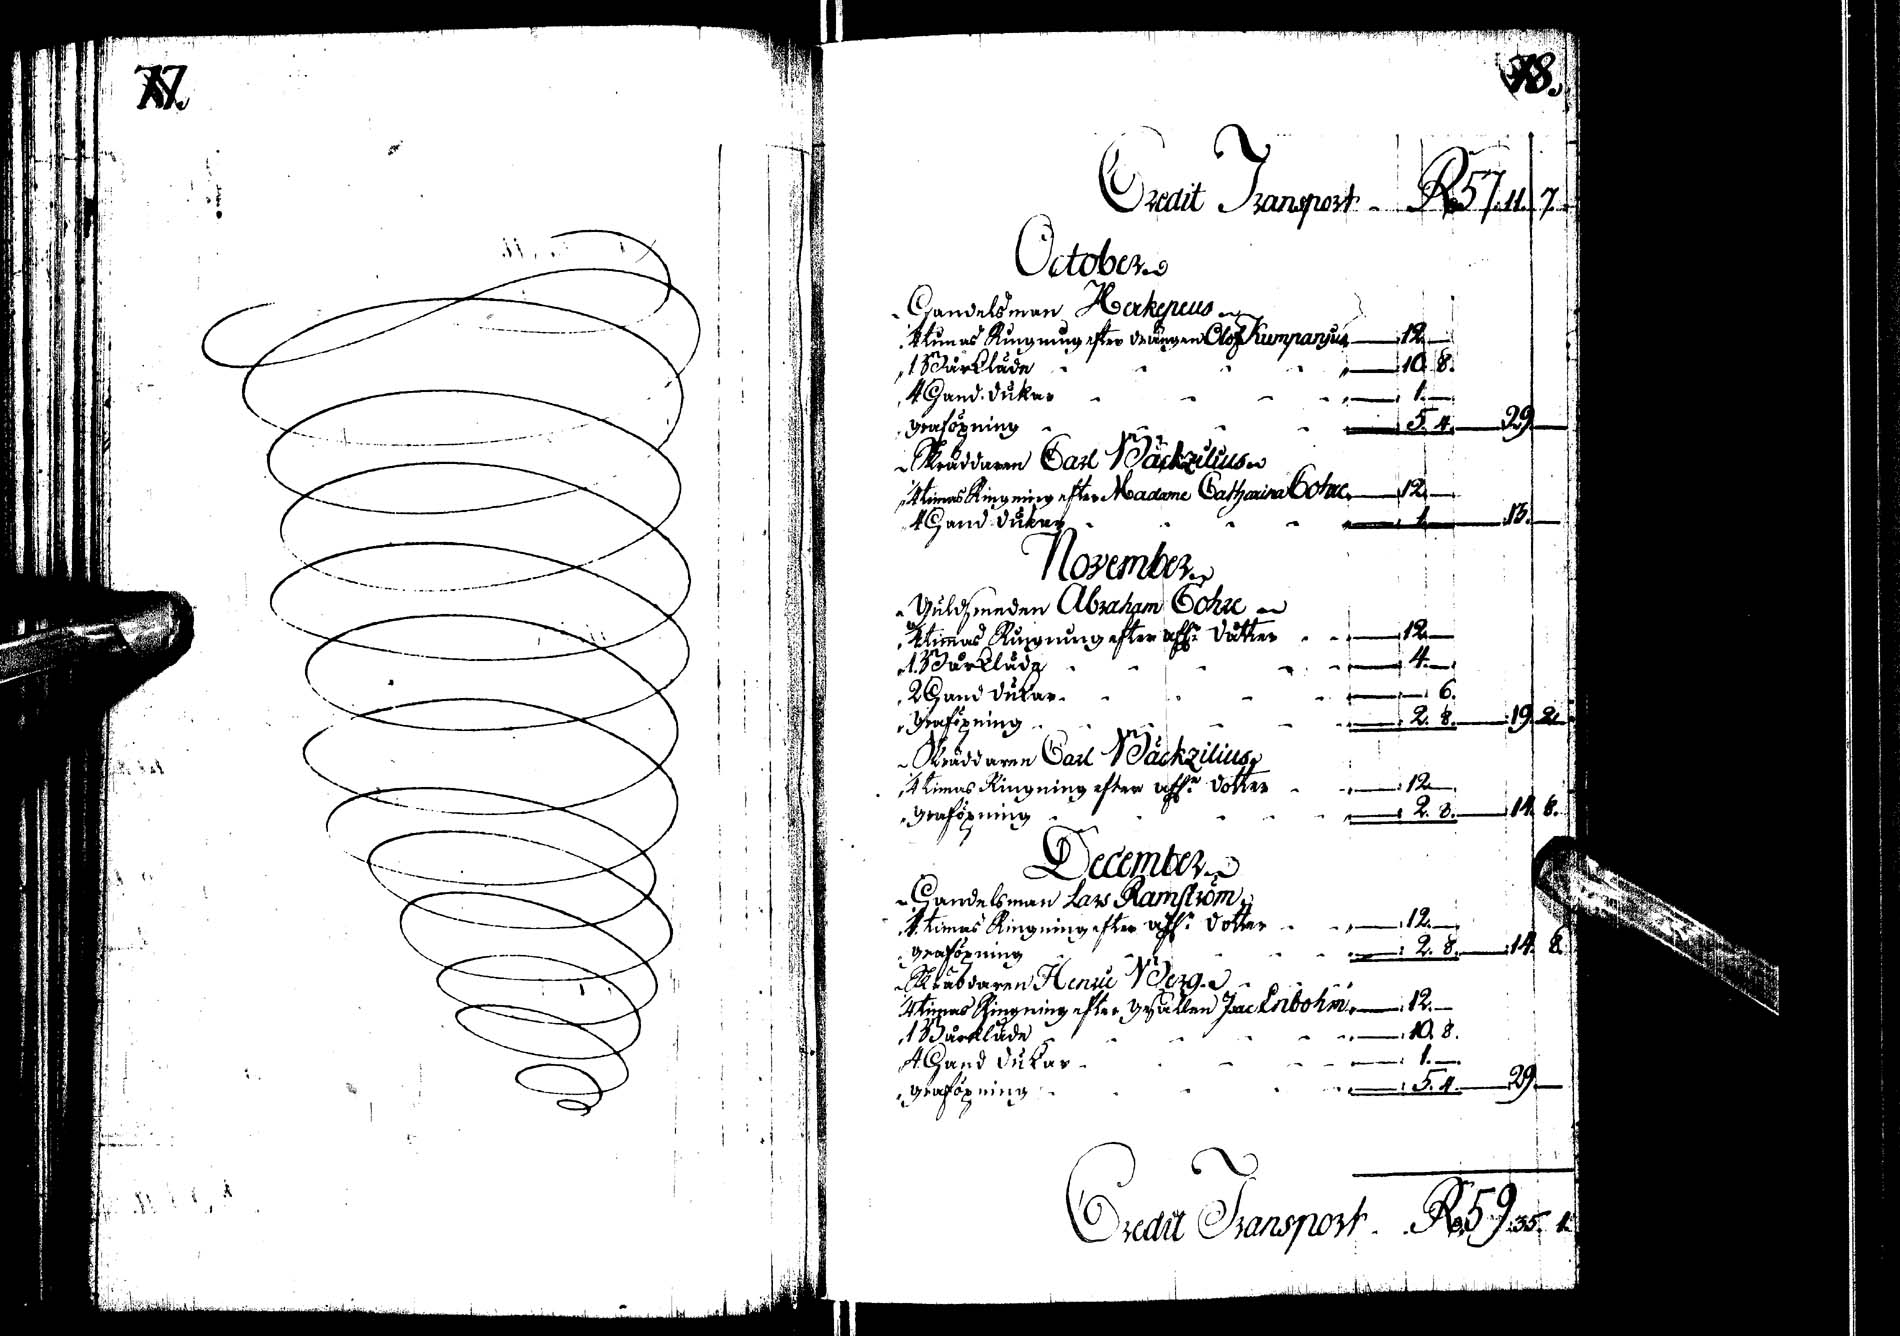 77.
78.
Credit Transport - R 57. 11. 7.
October
Handelsman Herkepeus
4 timas Ringning efter drängen Olof Kumpanjus 12.
1 Bårkläde 10. 8.
4 Hand dukar 1.
graföpning 5. 4. 29.
Skräddaren Carl Bäckzilius
4 timas Ringning efter Madame Catharina Gohre 12.
4 Hand dukar 1. 13.
November
Guldsmeden Abraham Gohre
4 timas Ringning efter aflne dotter 12.
1 Bårkläde 4.
2 Hand dukar 6.
graföpning 2. 8. 19. 2.
Skräddaren Carl Bäckzilius
4 timas Ringning efter aflne dotter 12.
graföpning 2. 8. 14. 8.
December
Handelsman Lars Ramström
4 timas Ringning efter aflne dotter 12.
graföpning 2. 8. 14. 8.
Skräddaren Henric Berg
4 timas Ringning efter gesällen Jsac Enbohm 12.
1 Bårkläde 10. 8.
4 Hand dukar 1.
graföpning 5. 4. 29.
Credit Transport - R 59. 35. 1.